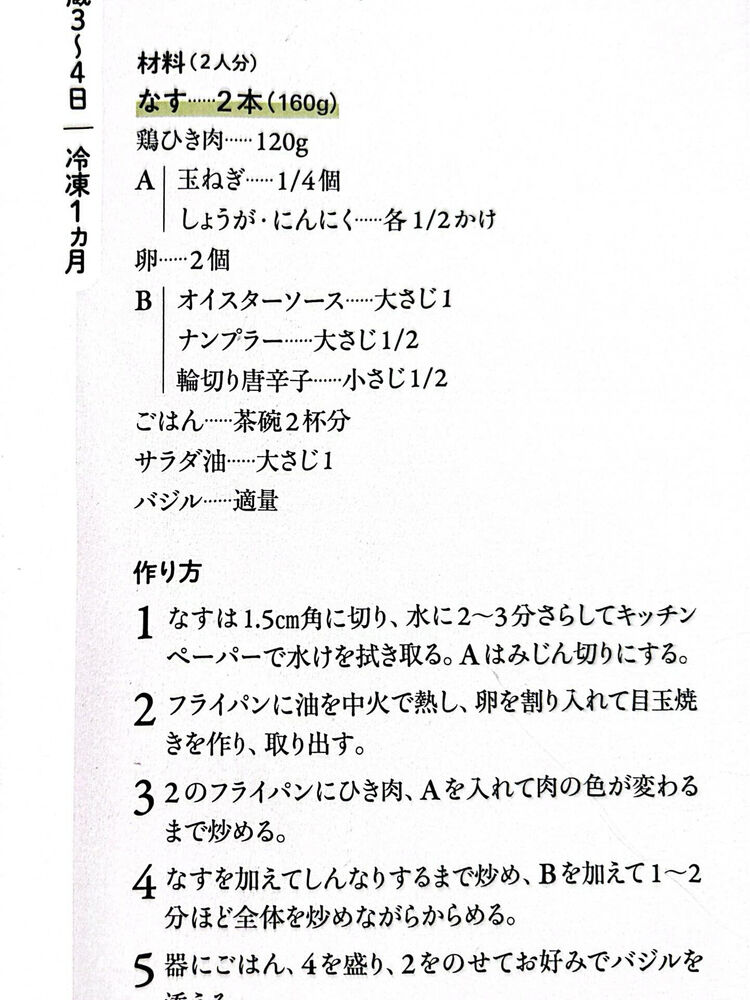 蔵3〜4日 ｜ 冷凍1ヵ月
材料（2人分）
なす……2本（160g）
鶏ひき肉……120g
A 玉ねぎ……1/4個
しょうが・にんにく……各1/2かけ
卵……2個
B オイスターソース……大さじ1
ナンプラー……大さじ1/2
輪切り唐辛子……小さじ1/2
ごはん……茶碗2杯分
サラダ油……大さじ1
バジル……適量
作り方
1 なすは1.5㎝角に切り、水に2〜3分さらしてキッチン
ペーパーで水けを拭き取る。Aはみじん切りにする。
2 フライパンに油を中火で熱し、卵を割り入れて目玉焼
きを作り、取り出す。
3 2のフライパンにひき肉、Aを入れて肉の色が変わる
まで炒める。
4 なすを加えてしんなりするまで炒め、Bを加えて1〜2
分ほど全体を炒めながらからめる。
5 器にごはん、4を盛り、2をのせてお好みでバジルを